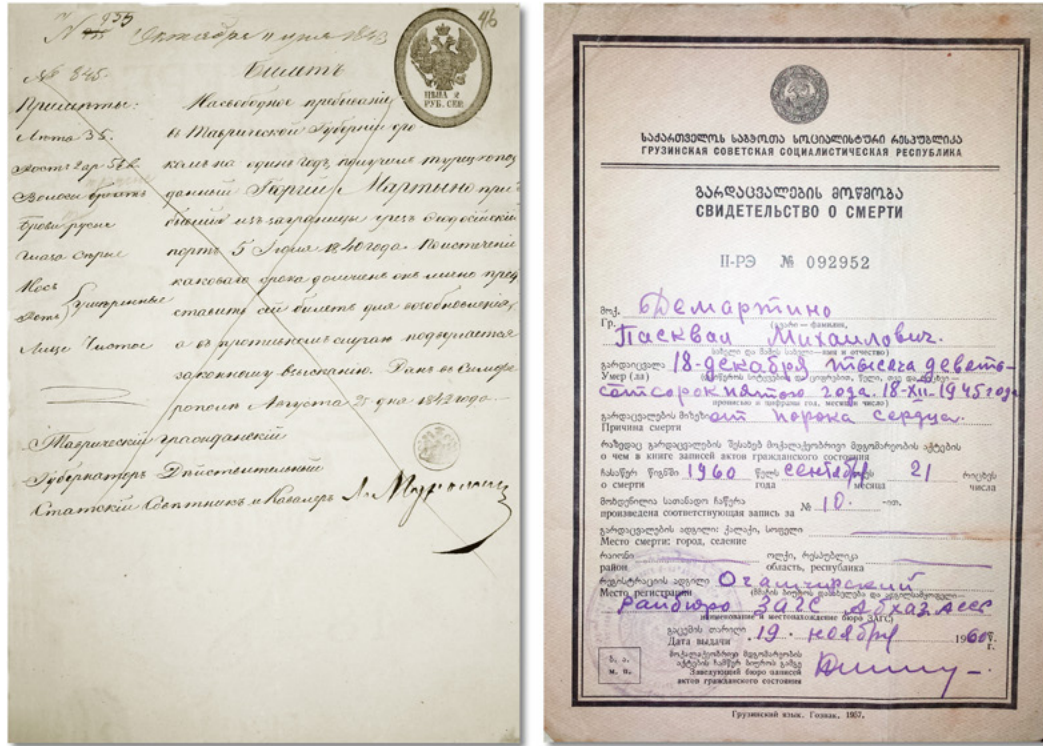 № 933
Октября 11 дня 1843
46
ЦѢНА 2
РУБ. СЕР.
№ 845.
Билетъ
Примѣты:
Лѣта 35.
Ростъ 2 ар. 5½ в.
Волоси
Брови русые
Глаза сѣрые
Носъ
Ротъ
умѣренные
Лице Чистое
На свободное пребываніе
въ Таврической Губерніи сро-
комъ на одинъ годъ, получилъ турецкопод
данный Георгій Мартыно при
бывшій изъ заграницы чрезъ Ѳеодосійскій
портъ 5 Іюля 1840 года. По истеченіи
каковаго срока долженъ онъ лично пред
ставить сей билетъ для возобновленія,
а въ противномъ случаѣ подвергается
законному взысканію. Данъ въ Симфе
рополѣ Августа 25 дня 1842 года.
Таврическій гражданскій
Губернаторъ Дѣйствительный
Статскій Совѣтникъ и Кавалеръ
ᲡᲐᲥᲐᲠᲗᲕᲔᲚᲝᲡ ᲡᲐᲑᲭᲝᲗᲐ ᲡᲝᲪᲘᲐᲚᲘᲡᲢᲣᲠᲘ ᲠᲔᲡᲞᲣᲑᲚᲘᲙᲐ
ГРУЗИНСКАЯ СОВЕТСКАЯ СОЦИАЛИСТИЧЕСКАЯ РЕСПУБЛИКА
ᲒᲐᲠᲓᲐᲪᲕᲐᲚᲔᲑᲘᲡ ᲛᲝᲬᲛᲝᲑᲐ
СВИДЕТЕЛЬСТВО О СМЕРТИ
II-РЭ № 092952
მოქ. Демартино
Гр. (გვარი — фамилия,
Пасквал Михаилович.
სახელი და მამის სახელი — имя и отчество)
გარდაიცვალა 18-декабря тысяча девять-
Умер (ла)
сотсорок пятого года. 18-XII-1945 года
прописью и цифрами год, месяц и число)
გარდაცვალების მიზეზი от порока сердца.
Причина смерти
რაზედაც გარდაცვალების შესახებ მოქალაქეობრივი მდგომარეობის აქტების
о чем в книге записей актов гражданского состояния
ჩასაწერ წიგნში 1960 წელს сентябр 21 რიცხვს
о смерти года месяца числа
მოხდენილია სათანადო ჩაწერა
произведена соответствующая запись за № 10. -ით.
გარდაცვალების ადგილი: ქალაქი, სოფელი
Место смерти: город, селение
რაიონი ოლქი, რესპუბლიკა
район область, республика
რეგისტრაციის ადგილი Очамчирский
Место регистрации
райбюро ЗАГС Абхаз АССР
наименование и местонахождение бюро ЗАГС)
გაცემის თარიღი
Дата выдачи 19. ноября 1960 г.
ბ. ა.
м. п.
მოქალაქეობრივი მდგომარეობის
აქტების ჩამწერ ბიუროს გამგე
Заведующий бюро записей
актов гражданского состояния
Грузинский язык. Гознак. 1957.